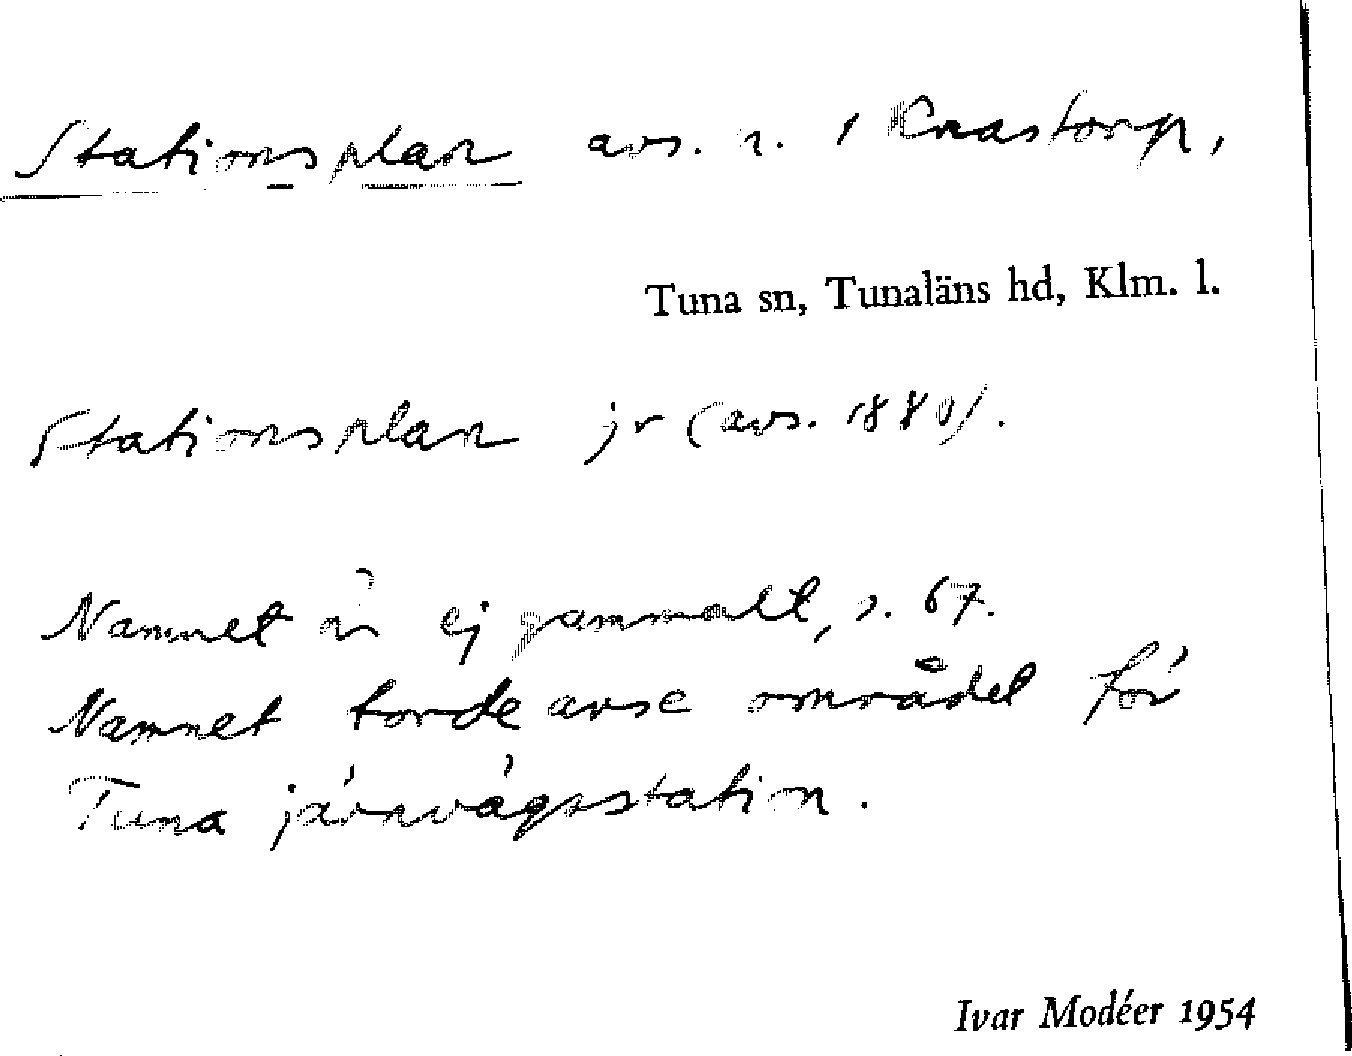 Stationsplan avs. n. i Knastorp,
Tuna sn, Tunaläns hd, Klm. l.
Stationsplan jr (avs. 1880).
Namnet är ej gammalt, s. 67.
Namnet torde avse området för
Tuna järnvägsstation.
Ivar Modéer 1954